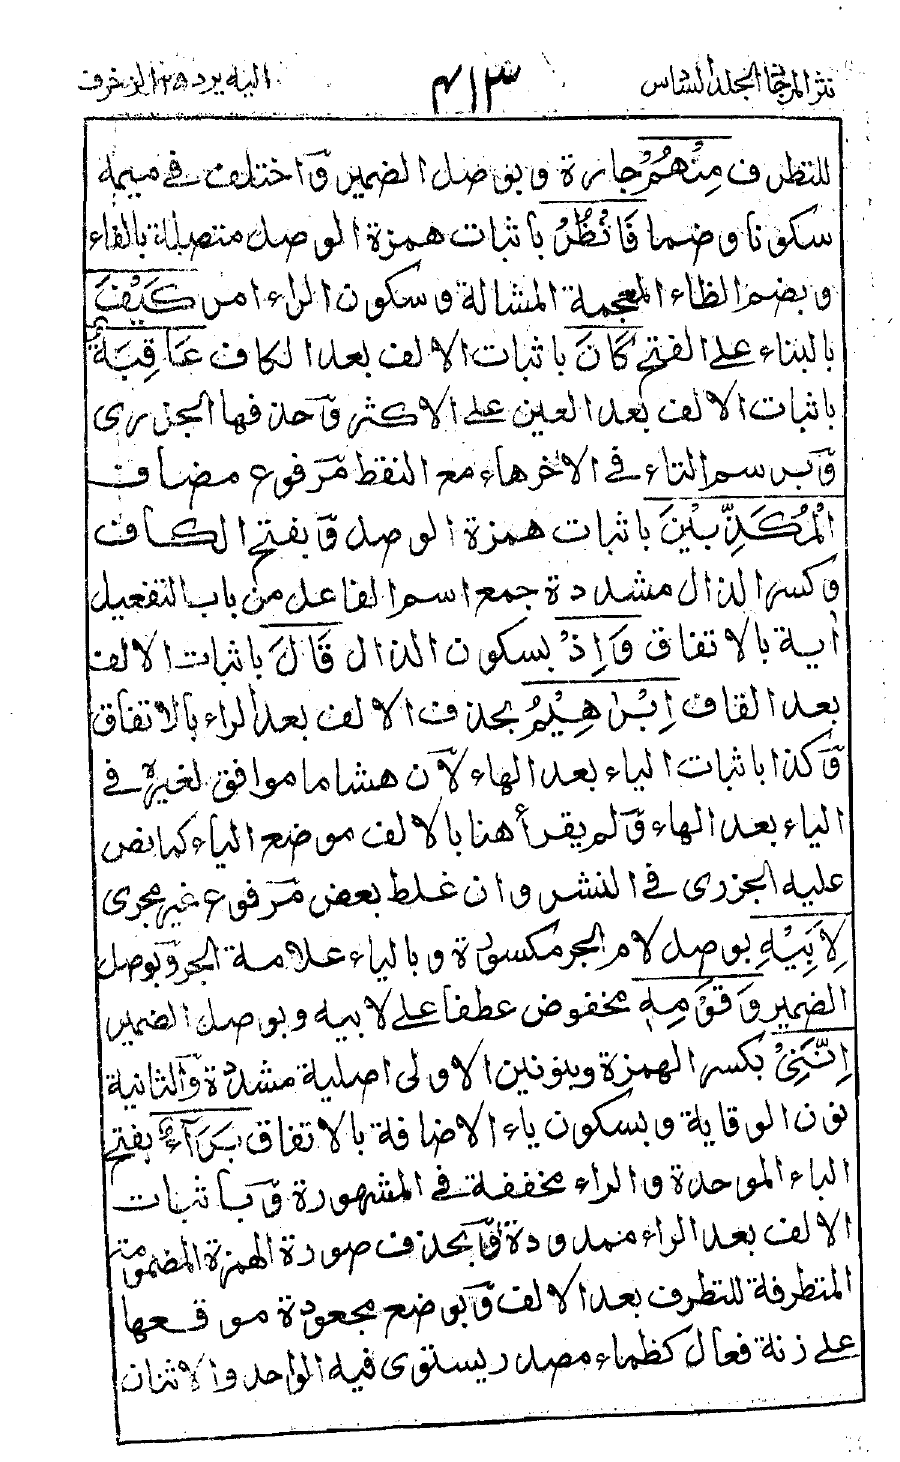 نثر المرجان الجلد السادس ٤١٣ اليه يرد ٢٥ الزخرف
للتطرف مِنْهُمْ جارة وبوصل الضمير وٓاختلف في ميمه
سكونا وضما فَانْظُرْ باثبات همزة الوصل متصلة بالفاء
وبضم الظاء المعجمة المشالة وسكون الراء امر كَيْفَ
بالبناء على الفتح كَانَ باثبات الالف بعد الكاف عَاقِبَةُ
باثبات الالف بعد العين على الاكثر وٓحذفها الجزرى
وٓبرسم التاء في الاخر هاء مع النقط مٓرفوع مضاف
الْمُكَذِّبِيْنَ باثبات همزة الوصل وٓبفتح الكاف
وكسر الذال مشددة جمع اسم الفاعل من باب التفعيل
اٰية بالاتفاق وَاِذْ بسكون الذال قَالَ باثبات الالف
بعد القاف اِبْرٰهِيْمُ بحذف الالف بعد الراء بالاتفاق
وٓكذا باثبات الياء بعد الهاء لآن هشاما موافق لغيره في
الياء بعد الهاء وٓلم يقرأ هنا بالالف موضع الياء كما نص
عليه الجزرى في النشر وان غلط بعض مٓرفوع غير مجرى
لِاَبِيْهِ بوصل لام الجر مكسورة وبالياء علامة الجر وٓبوصل
الضمير وَقَوْمِهٖ مخفوض عطفا على لابيه وبوصل الضمير
اِنَّنِىْ بكسر الهمزة وبنونين الاولى اصلية مشددة وٓالثانية
نون الوقاية وبسكون ياء الاضافة بالاتفاق بَرَآءٌ بفتح
الباء الموحدة والراء مخففة في المشهورة وٓباثبات
الالف بعد الراء ممدودة وٓبحذف صورة الهمزة المضمومة
المتطرفة للتطرف بعد الالف وٓبوضع مجعودة موقعها
على زنة فعال كظماء مصدر يستوى فيه الواحد والاثنان